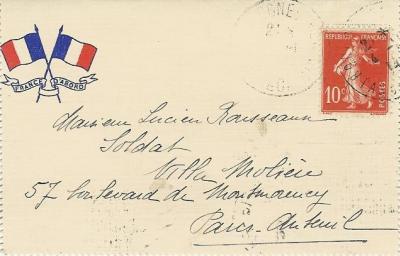 FRANCE D'ABORD
REPUBLIQUE FRANÇAISE
10c
POSTES
Monsieur Lucien Rousseaux
Soldat
Villa Molière
57 boulevard de Montmorency
Paris-Auteuil